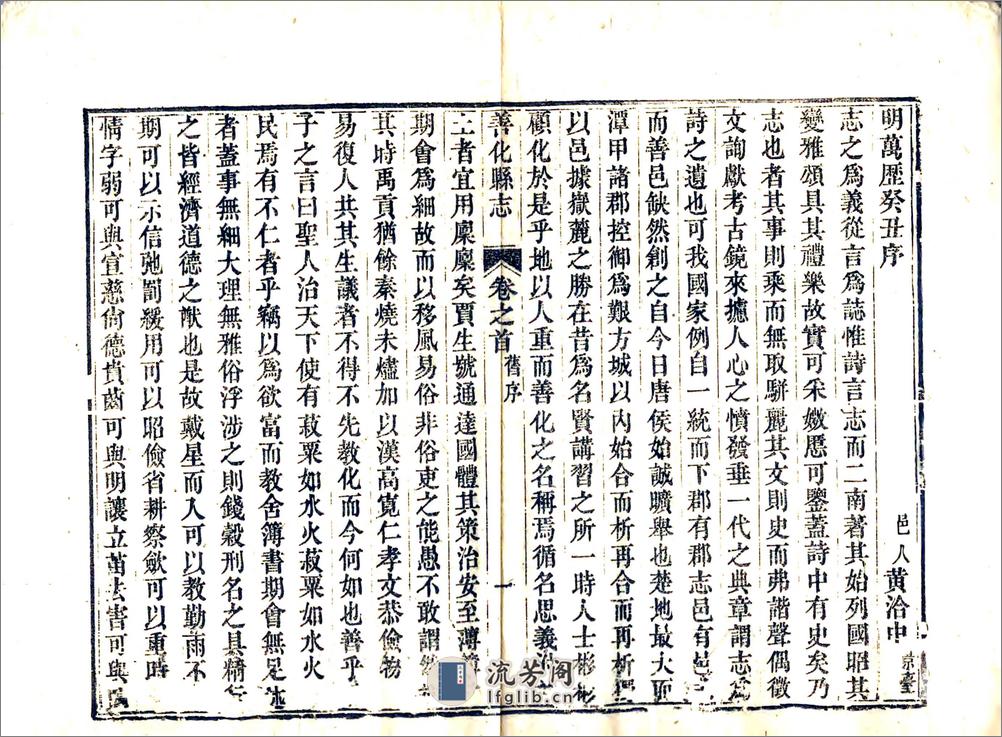 明萬歷癸丑序
邑人黃洽中京臺
志之為義從言為誌惟詩言志而二南著其始列國昭其
變雅頌具其禮樂故實可采媺慝可鑒蓋詩中有史矣乃
志也者其事則乘而無取駢麗其文則史而弗諧聲偶徵
文詢獻考古鏡來攄人心之憤發垂一代之典章謂志為
詩之遺也可我國家例自一統而下郡有郡志邑有邑
而善邑缺然創之自今日唐侯始誠曠舉也楚地最大而
潭甲諸郡控御為艱方城以內始合而析再合而再析
以邑據嶽麓之勝在昔為名賢講習之所一時人士彬彬
顧化於是乎地以人重而善化之名稱焉循名思義
善化縣志
卷之首
舊序
一
二者宜用廩廩矣賈生號通達國體其策治安至薄
期會為細故而以移風易俗非俗吏之能愚不敢謂
其時禹貢猶餘秦燒未燼加以漢高寬仁孝文恭儉物
易復人共其生議者不得不先教化而今何如也善乎
子之言曰聖人治天下使有菽粟如水火菽粟如水火
民焉有不仁者乎竊以為欲富而教舍簿書期會無足
者蓋事無細大理無雅俗浮涉之則錢穀刑名之具精
之皆經濟道德之猷也是故戴星而入可以教勤雨不
期可以示信弛罰緩用可以昭儉省耕察歛可以重時
情字弱可與宣慈尚德貴齒可與明讓立苗去害可與
流芳閣
lfglib.cn